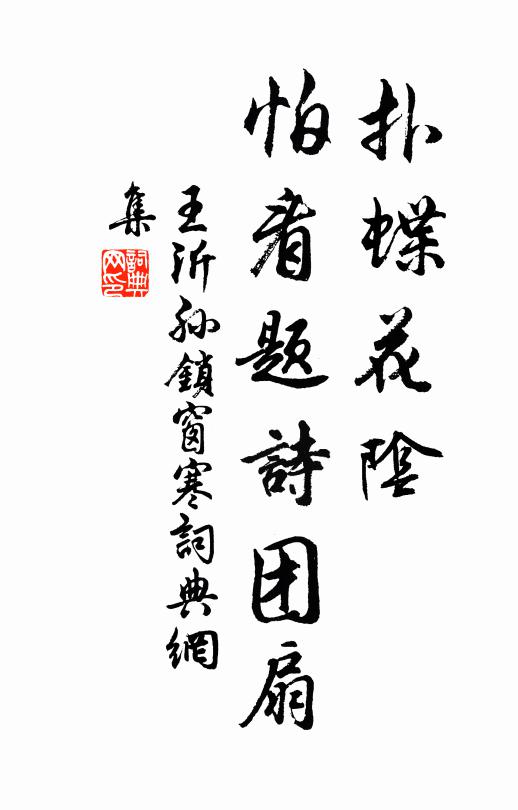 扑蝶花陰
怕看题詩团扇
王沂孙鎖窗寒詞典網
集
詞典
网印